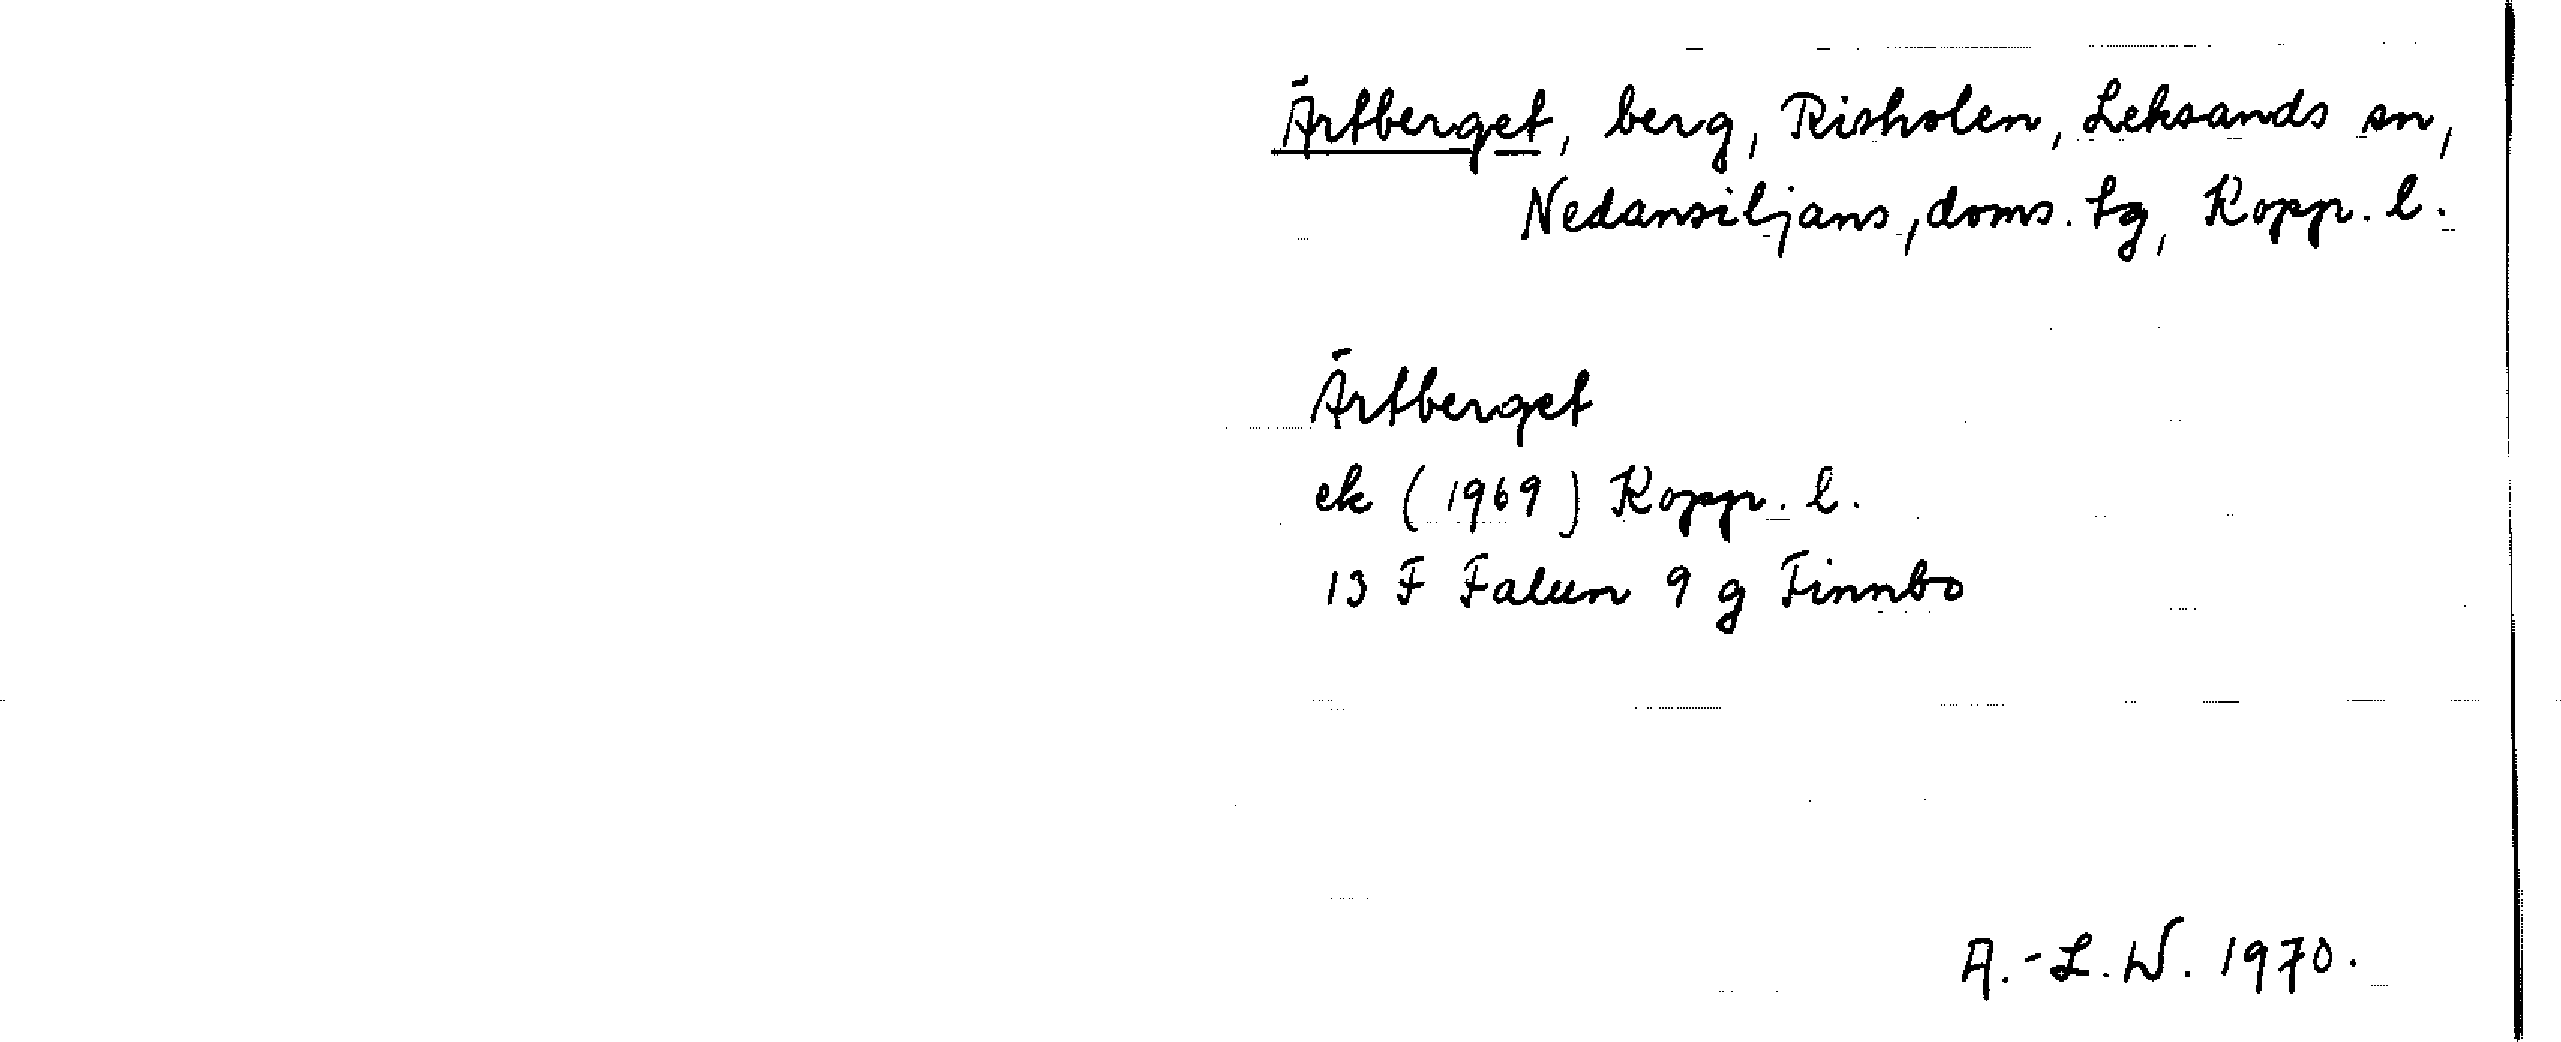 Ärtberget, berg, Risholen, Leksands sn,
Nedansiljans, doms. tg, Kopp. l.
Ärtberget
ek (1969) Kopp. l.
13 F Falun 9 g Finnbo
A.-L. W. 1970.